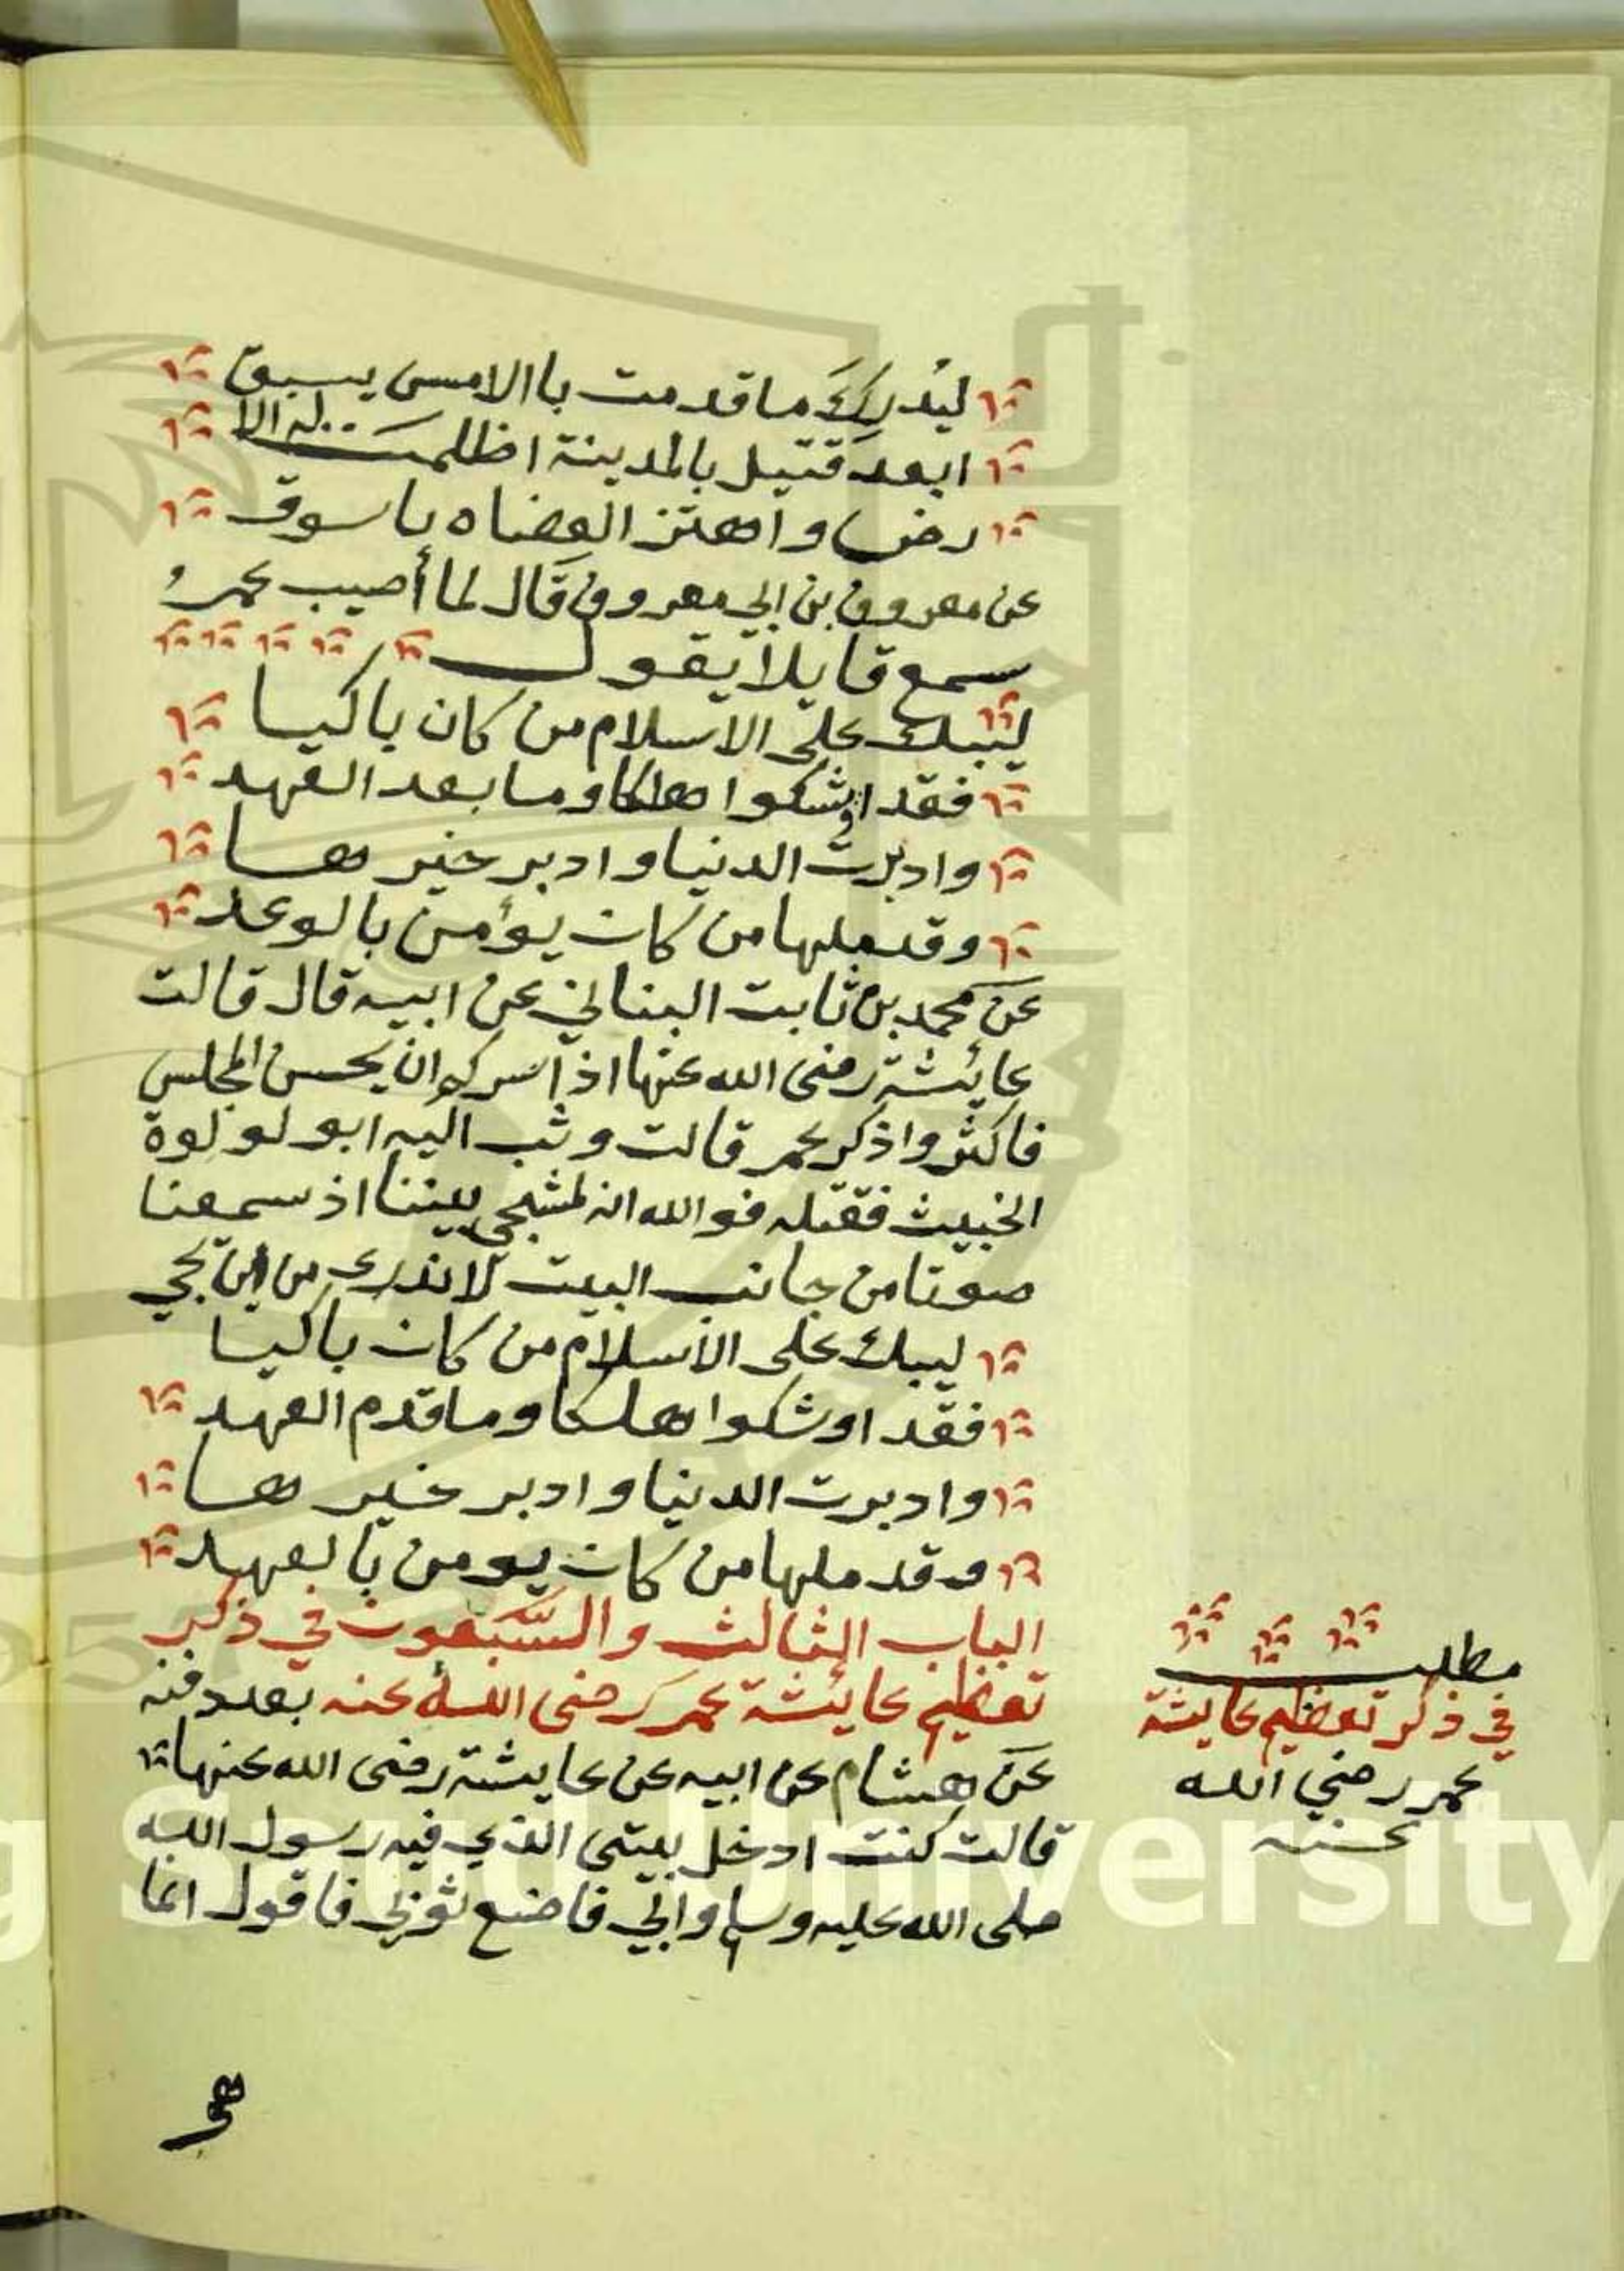 ليُدركَ ما قدمت باالامس يسبق
ابعدَ قتيل بالمدينة اظلمت له الا
رض واهتز العضاه باسوق
عن معروف بن ابي معروف قال لما أصيب عمرُ
سمع قايلا يقول
ليبك على الاسلام من كان باكيا
فقد اوشكوا هلكا وما بعد العهد
وادبرت الدنيا وادبر خيرها
وقد ملها من كان يؤمن بالوعد
عن محمد بن ثابت البناني عن ابيه قال قالت
عائشة رضى الله عنها اذا سركم ان يحسن المجلس
فاكثروا ذكر عمر قالت وثب اليه ابو لولوة
الخبيث فقتله فوالله انه لمسجى بيننا اذ سمعنا
صوتا من جانب البيت لا ندرى من اين يجي
ليبك على الاسلام من كان باكيا
فقد اوشكوا هلكا وما قدم العهد
وادبرت الدنيا وادبر خيرها
وقد ملها من كان يومن بالعهد
الباب الثالث والسبعون في ذكر
تعظيم عائشة عمر رضى الله عنه بعد دفنه
عن هشام عن ابيه عن عايشة رضى الله عنها
قالت كنت ادخل بيتى الذي فيه رسول الله
صلى الله عليه وسلم وابي فاضع ثوبي فاقول انما
هو
مطلب
في ذكر تعظيم عايشة
عمر رضي الله
عنه
King Saud University